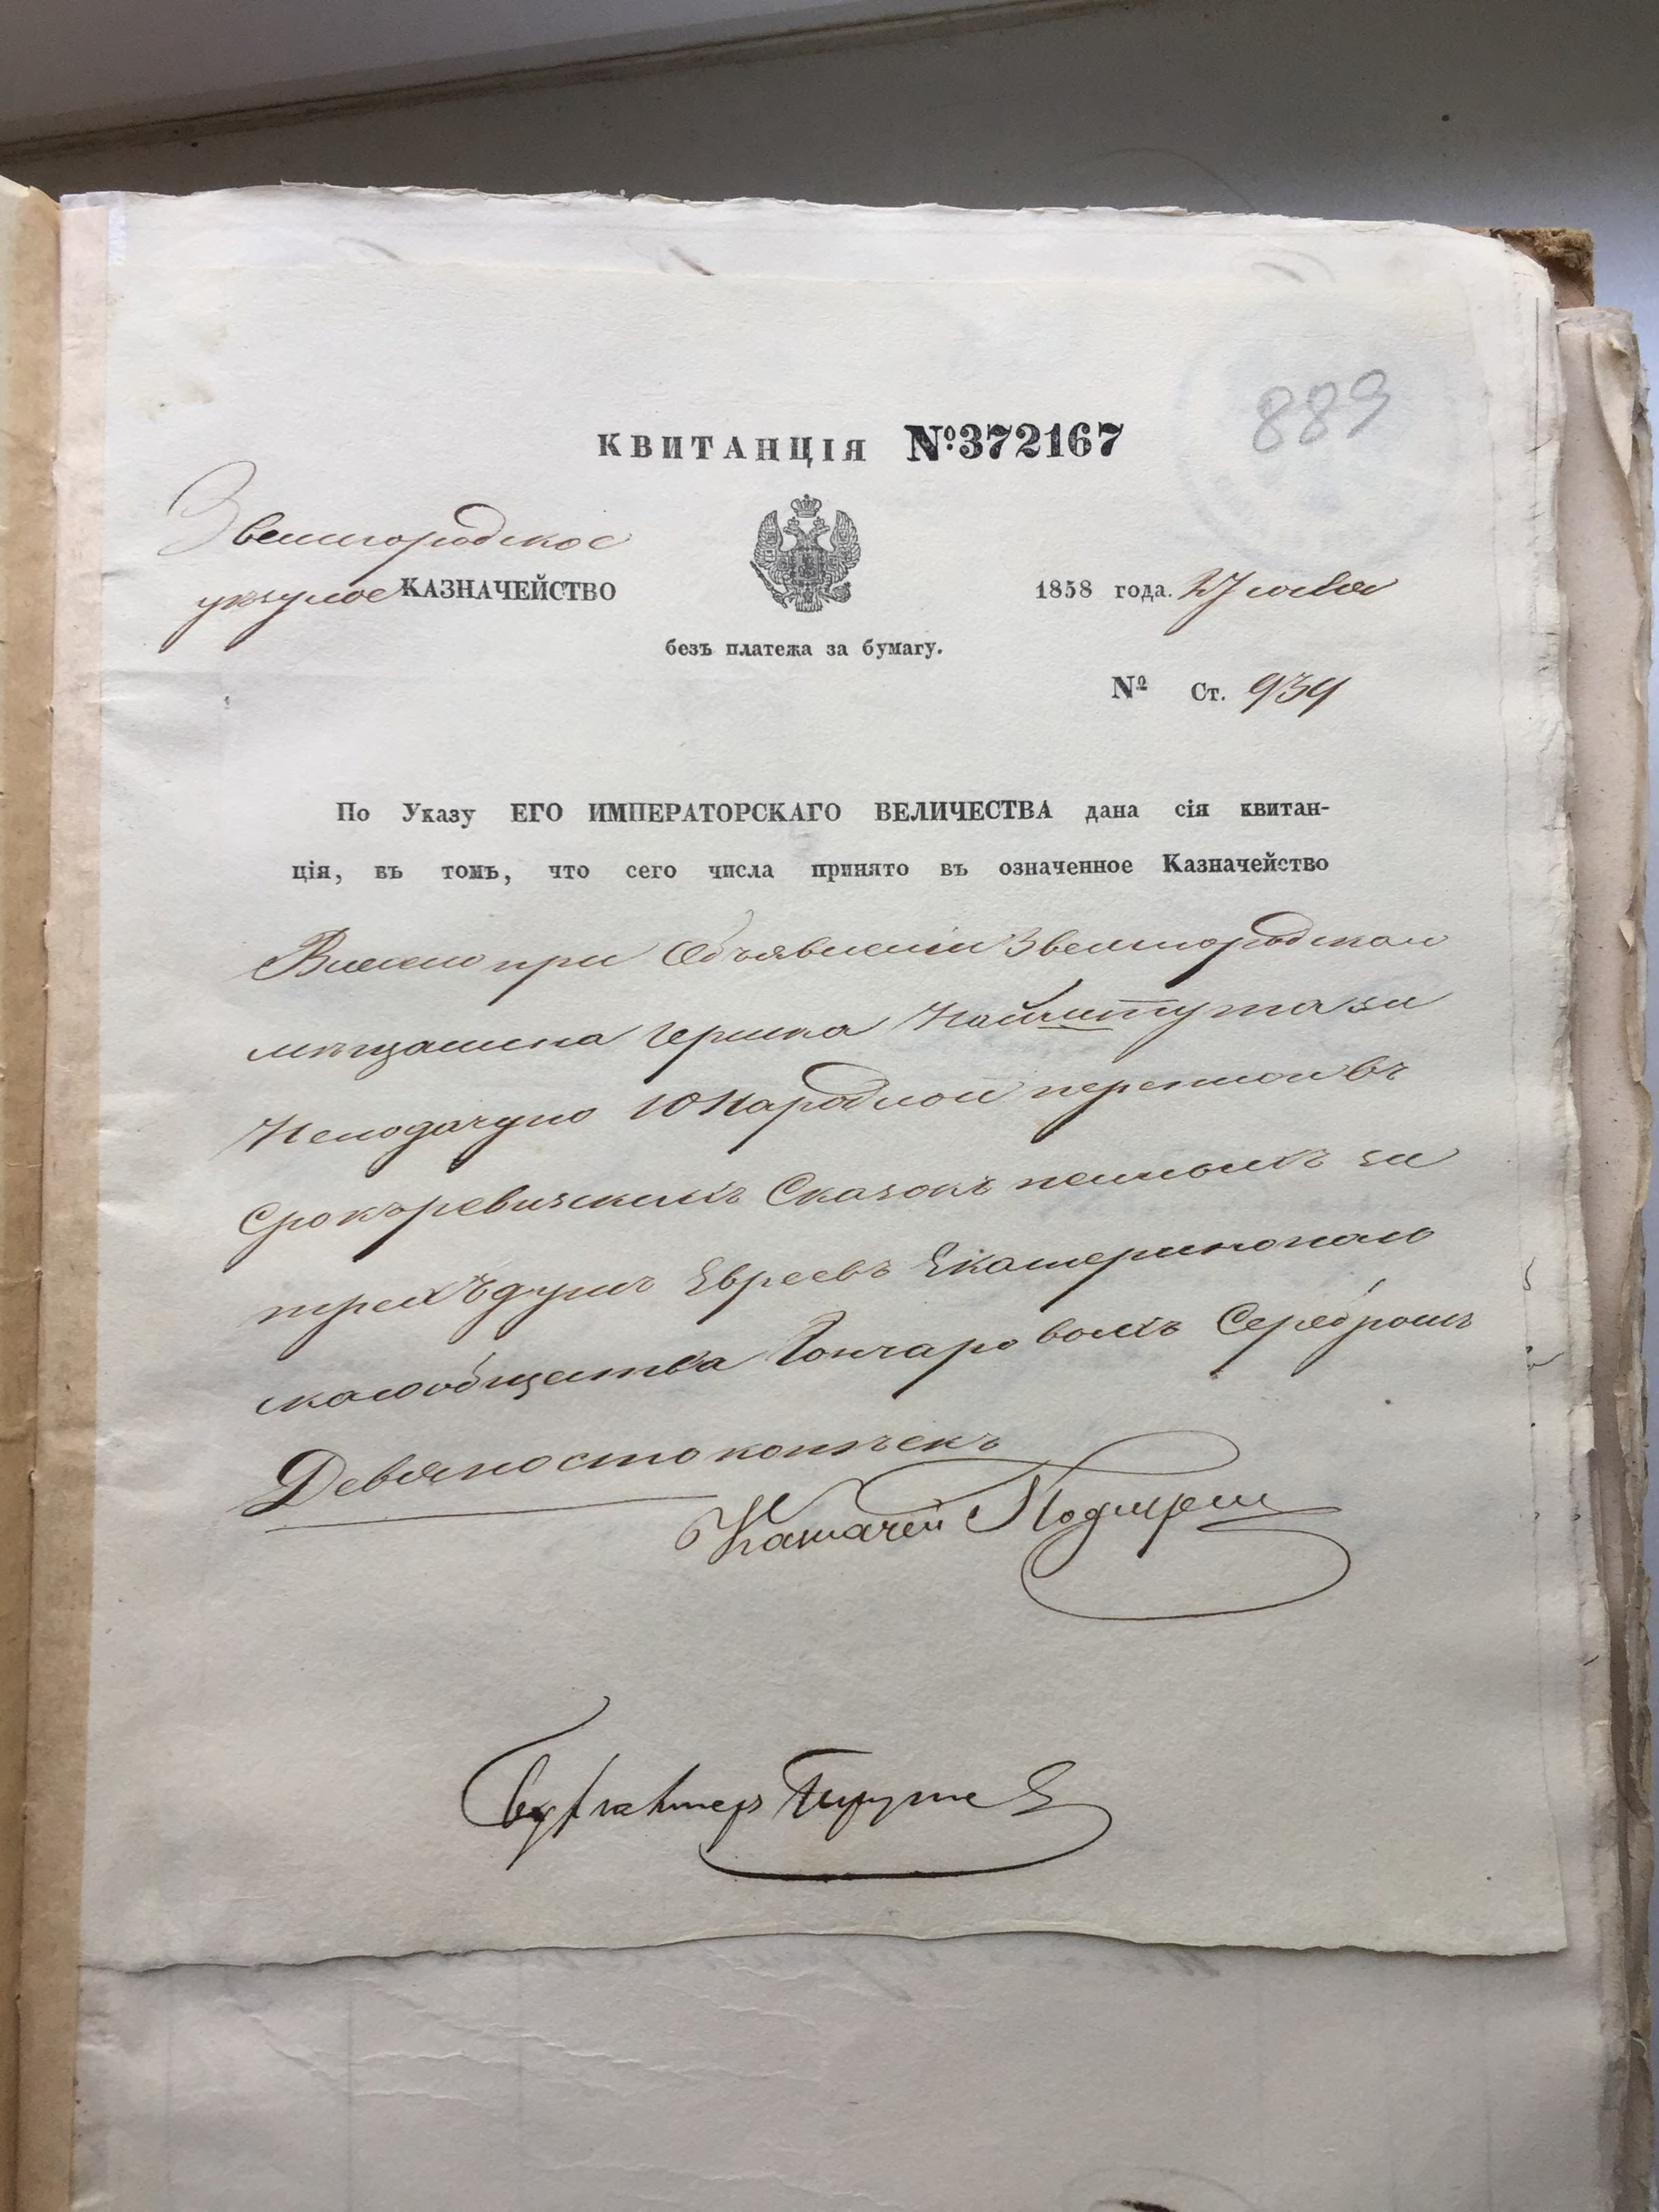 889
КВИТАНЦІЯ №372167
Звенигородское
уѣздное КАЗНАЧЕЙСТВО
1858 года. 27
безъ платежа за бумагу.
№ Ст. 939
По Указу ЕГО ИМПЕРАТОРСКАГО ВЕЛИЧЕСТВА дана сія квитан-
ція, въ томъ, что сего числа принято въ означенное Казначейство
при Объявленіи Звенигородскаго
мѣщанина Гершка
Неподачу по 10 Народной переписи въ
Срокъ ревизскихъ Сказокъ пенныхъ за
трехъ душъ Евреевъ Екатеринополь
скаго общества Гончаровомъ Серебромъ
Девяносто копѣекъ
Казначей
Бухгалтеръ